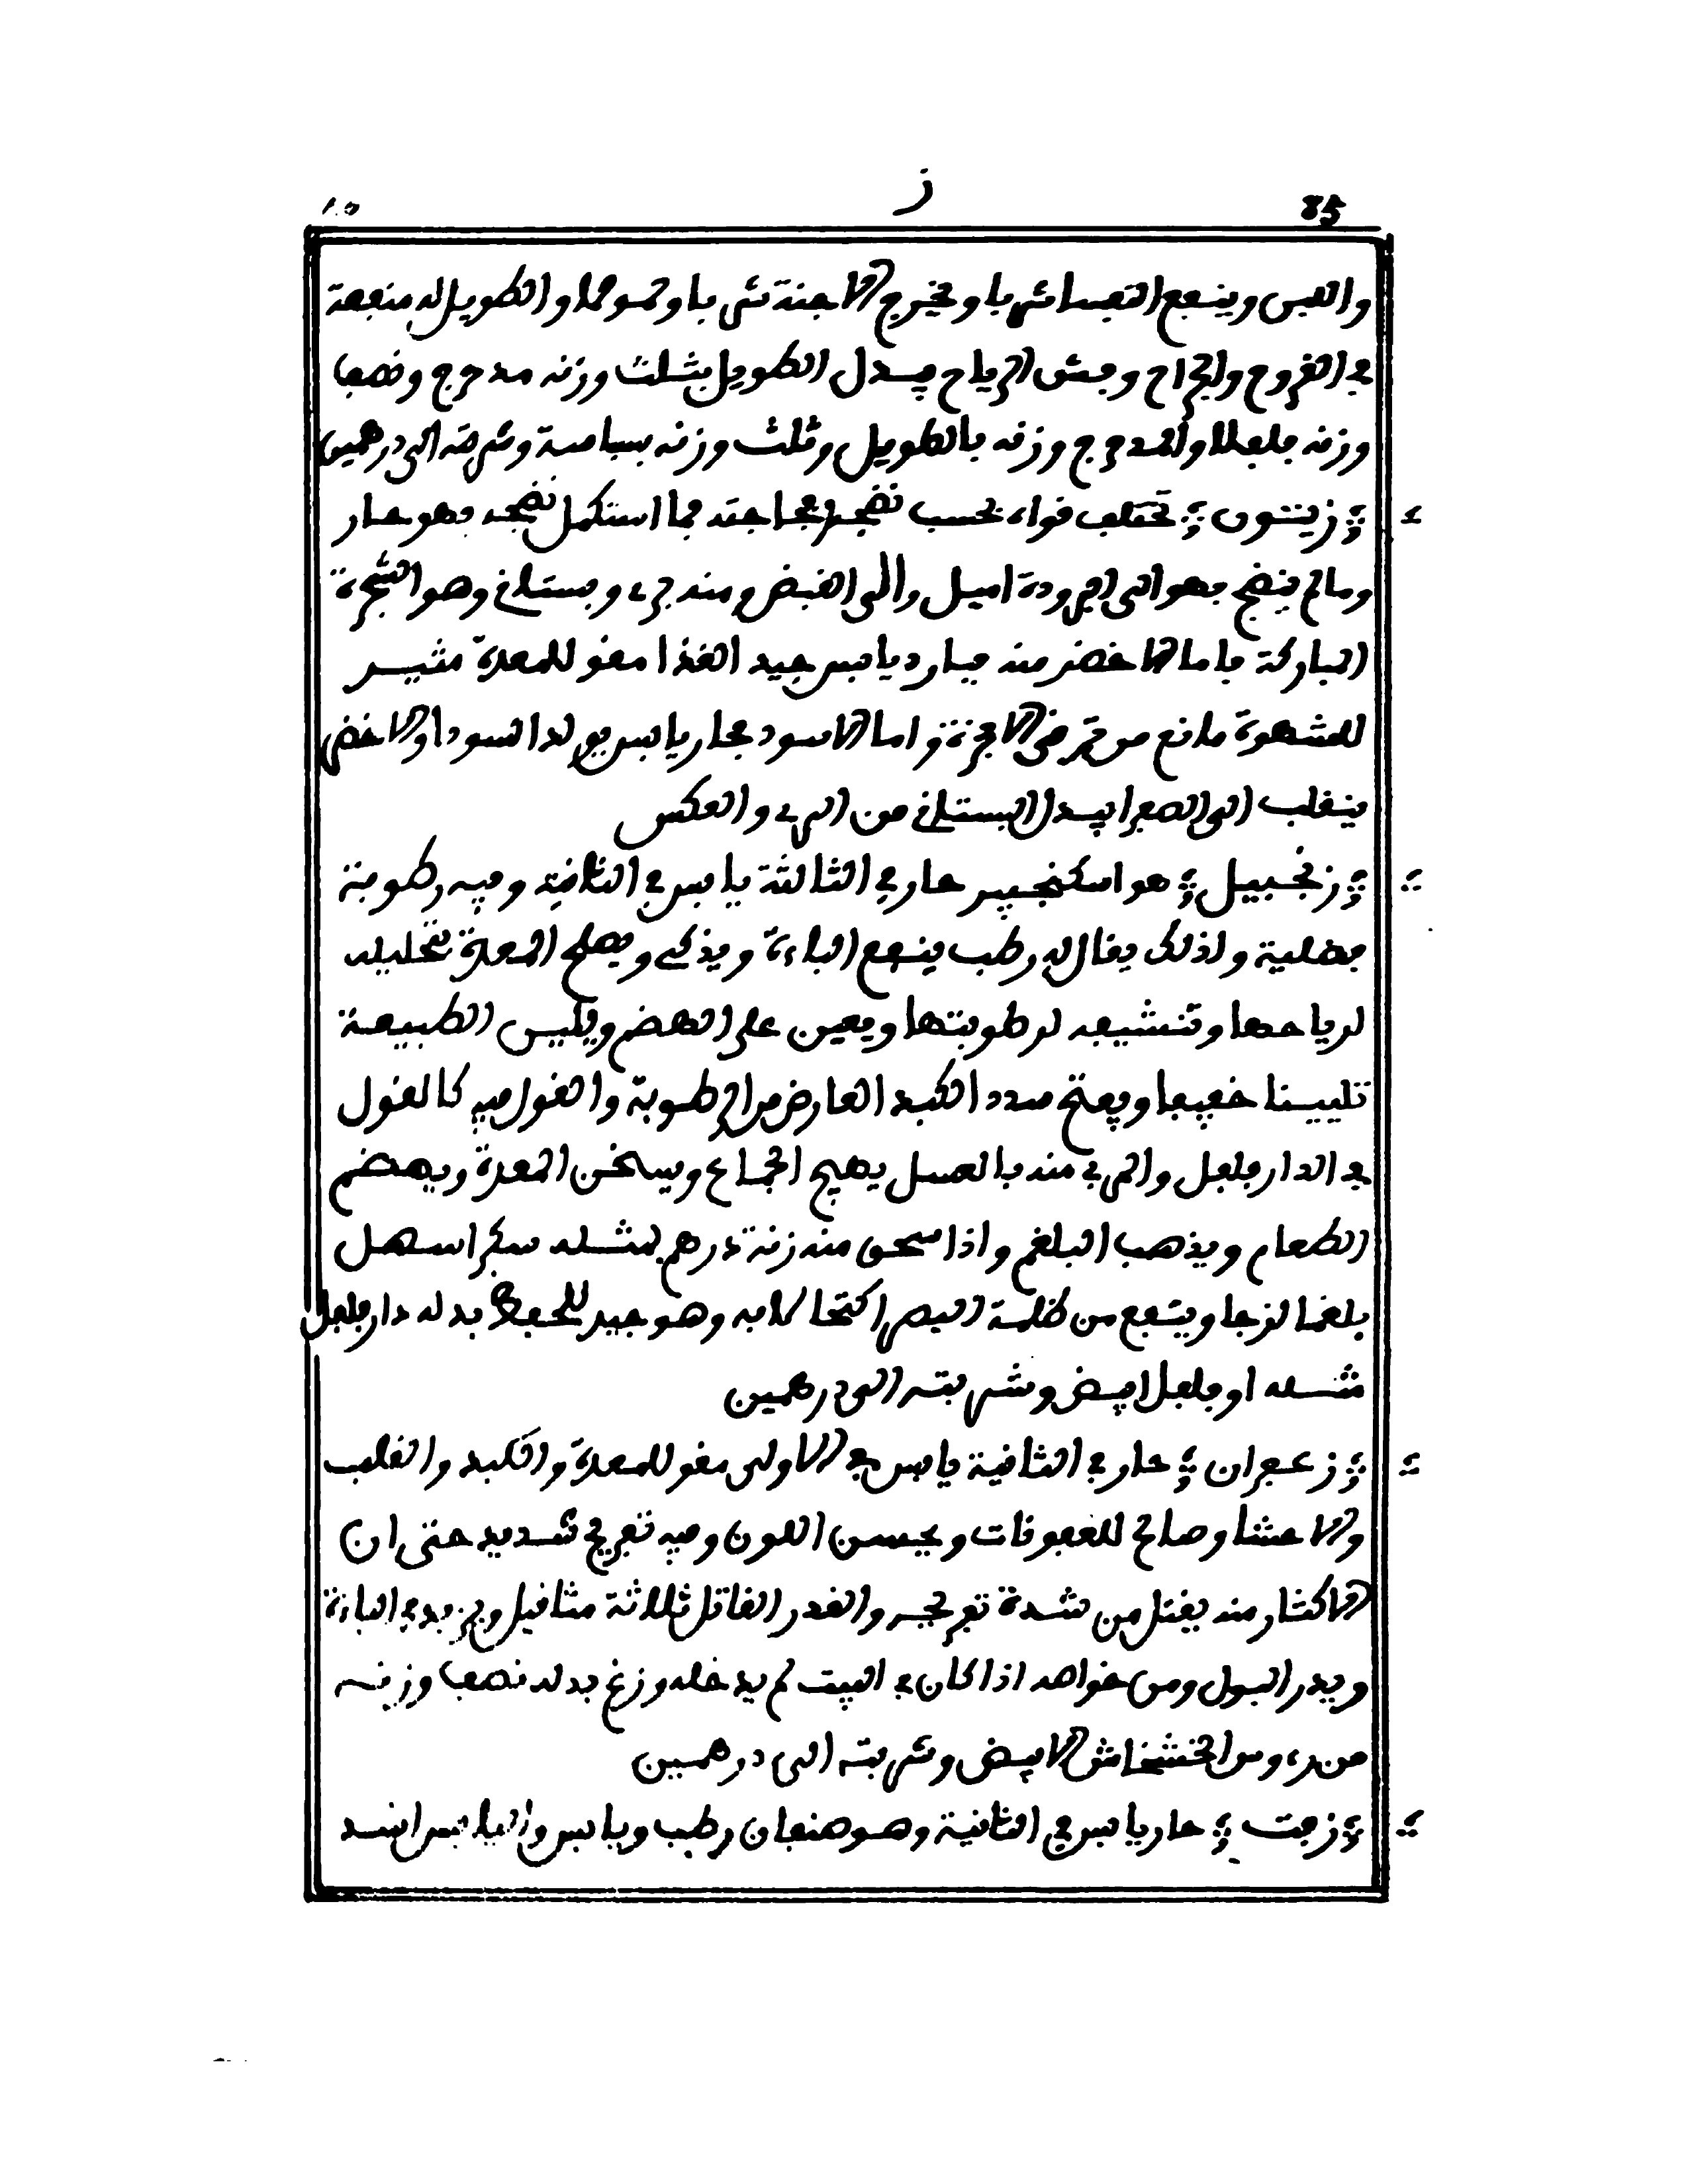 85 ز
والنفس وينفع النفسا شربا ويخرج الاجنة شربا وحمولا والطويل له منفعة
في القروح والجراح وفش الرياح يبدل الطويل بثلث وزنه مدحرج ونصف
وزنه فلفلا والمدحرج وزنه بالطويل وثلث وزنه بسباسة وشربته الى درهمين
زيتون تختلف قواه بحسب نضجه وفجاجته فما استكمل نضجه فهو حار
وما لم ينضج فهو الى البرودة اميل والى القبض ومنه بري وبستاني وهو الشجرة
المباركة فاما الاخضر منه فبارد يابس جيد الغذا مقو للمعدة مثير
للشهوة مانع من الابخرة واما الاسود فحار يابس يولد السودا والاخضر
ينقلب الى الصفرا يبدل البستاني من البري والعكس
زنجبيل هو اسكنجبير حار في الثالثة يابس في الثانية وفيه رطوبة
فضلية ولذلك يقال له رطب ينفع الباءة ويذكي ويصلح المعدة بتحليله
لرياحها وتنشيفه لرطوبتها ويعين على الهضم ويليين الطبيعة
تلييينا خفيفا ويفتح سدد الكبد العارض من الرطوبة والقول فيه كالقول
في الدار فلفل والمربى منه بالعسل يهيج الجماع ويسخن المعدة ويهضم
الطعام ويذهب البلغم واذا سحق منه زنة درهم بمثله سكرا اسهل
بلغما لزجا وينفع من ظلمة البصر اكتحالا به وهو جيد للحفظ بدله دار فلفل
مثله او فلفل ابيض وشربته الى درهمين
زعفران حار في الثانية يابس في الاولى مقو للمعدة والكبد والقلب
والاحشا وصالح للعفونات ويحسن اللون وفيه تفريح شديد حتى ان
الاكثار منه يقتل من شدة تفريحه والقدر القاتل ثلاثة مثاقيل ويزيد في الباءة
ويدر البول ومن خواصه اذا كان في البيت لم يدخله وزغ بدله نصف وزنه
من رءوس الخشخاش الابيض وشربته الى درهمين
زفت حار يابس في الثانية وهو صنفان رطب ويابس واليابس اشد